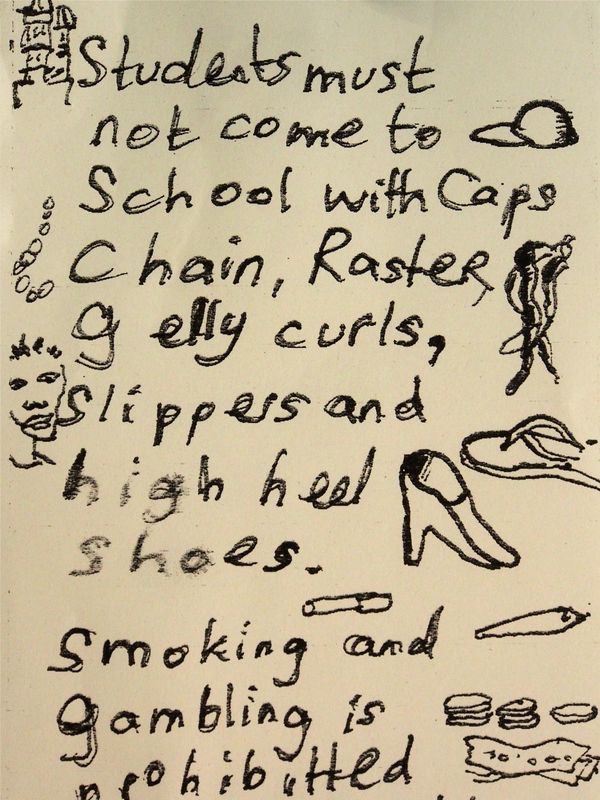 Students must
not come to
School with Caps
Chain, Raster,
gelly curls,
slippers and
high heel
shoes.
smoking and
gambling is
prohibitted